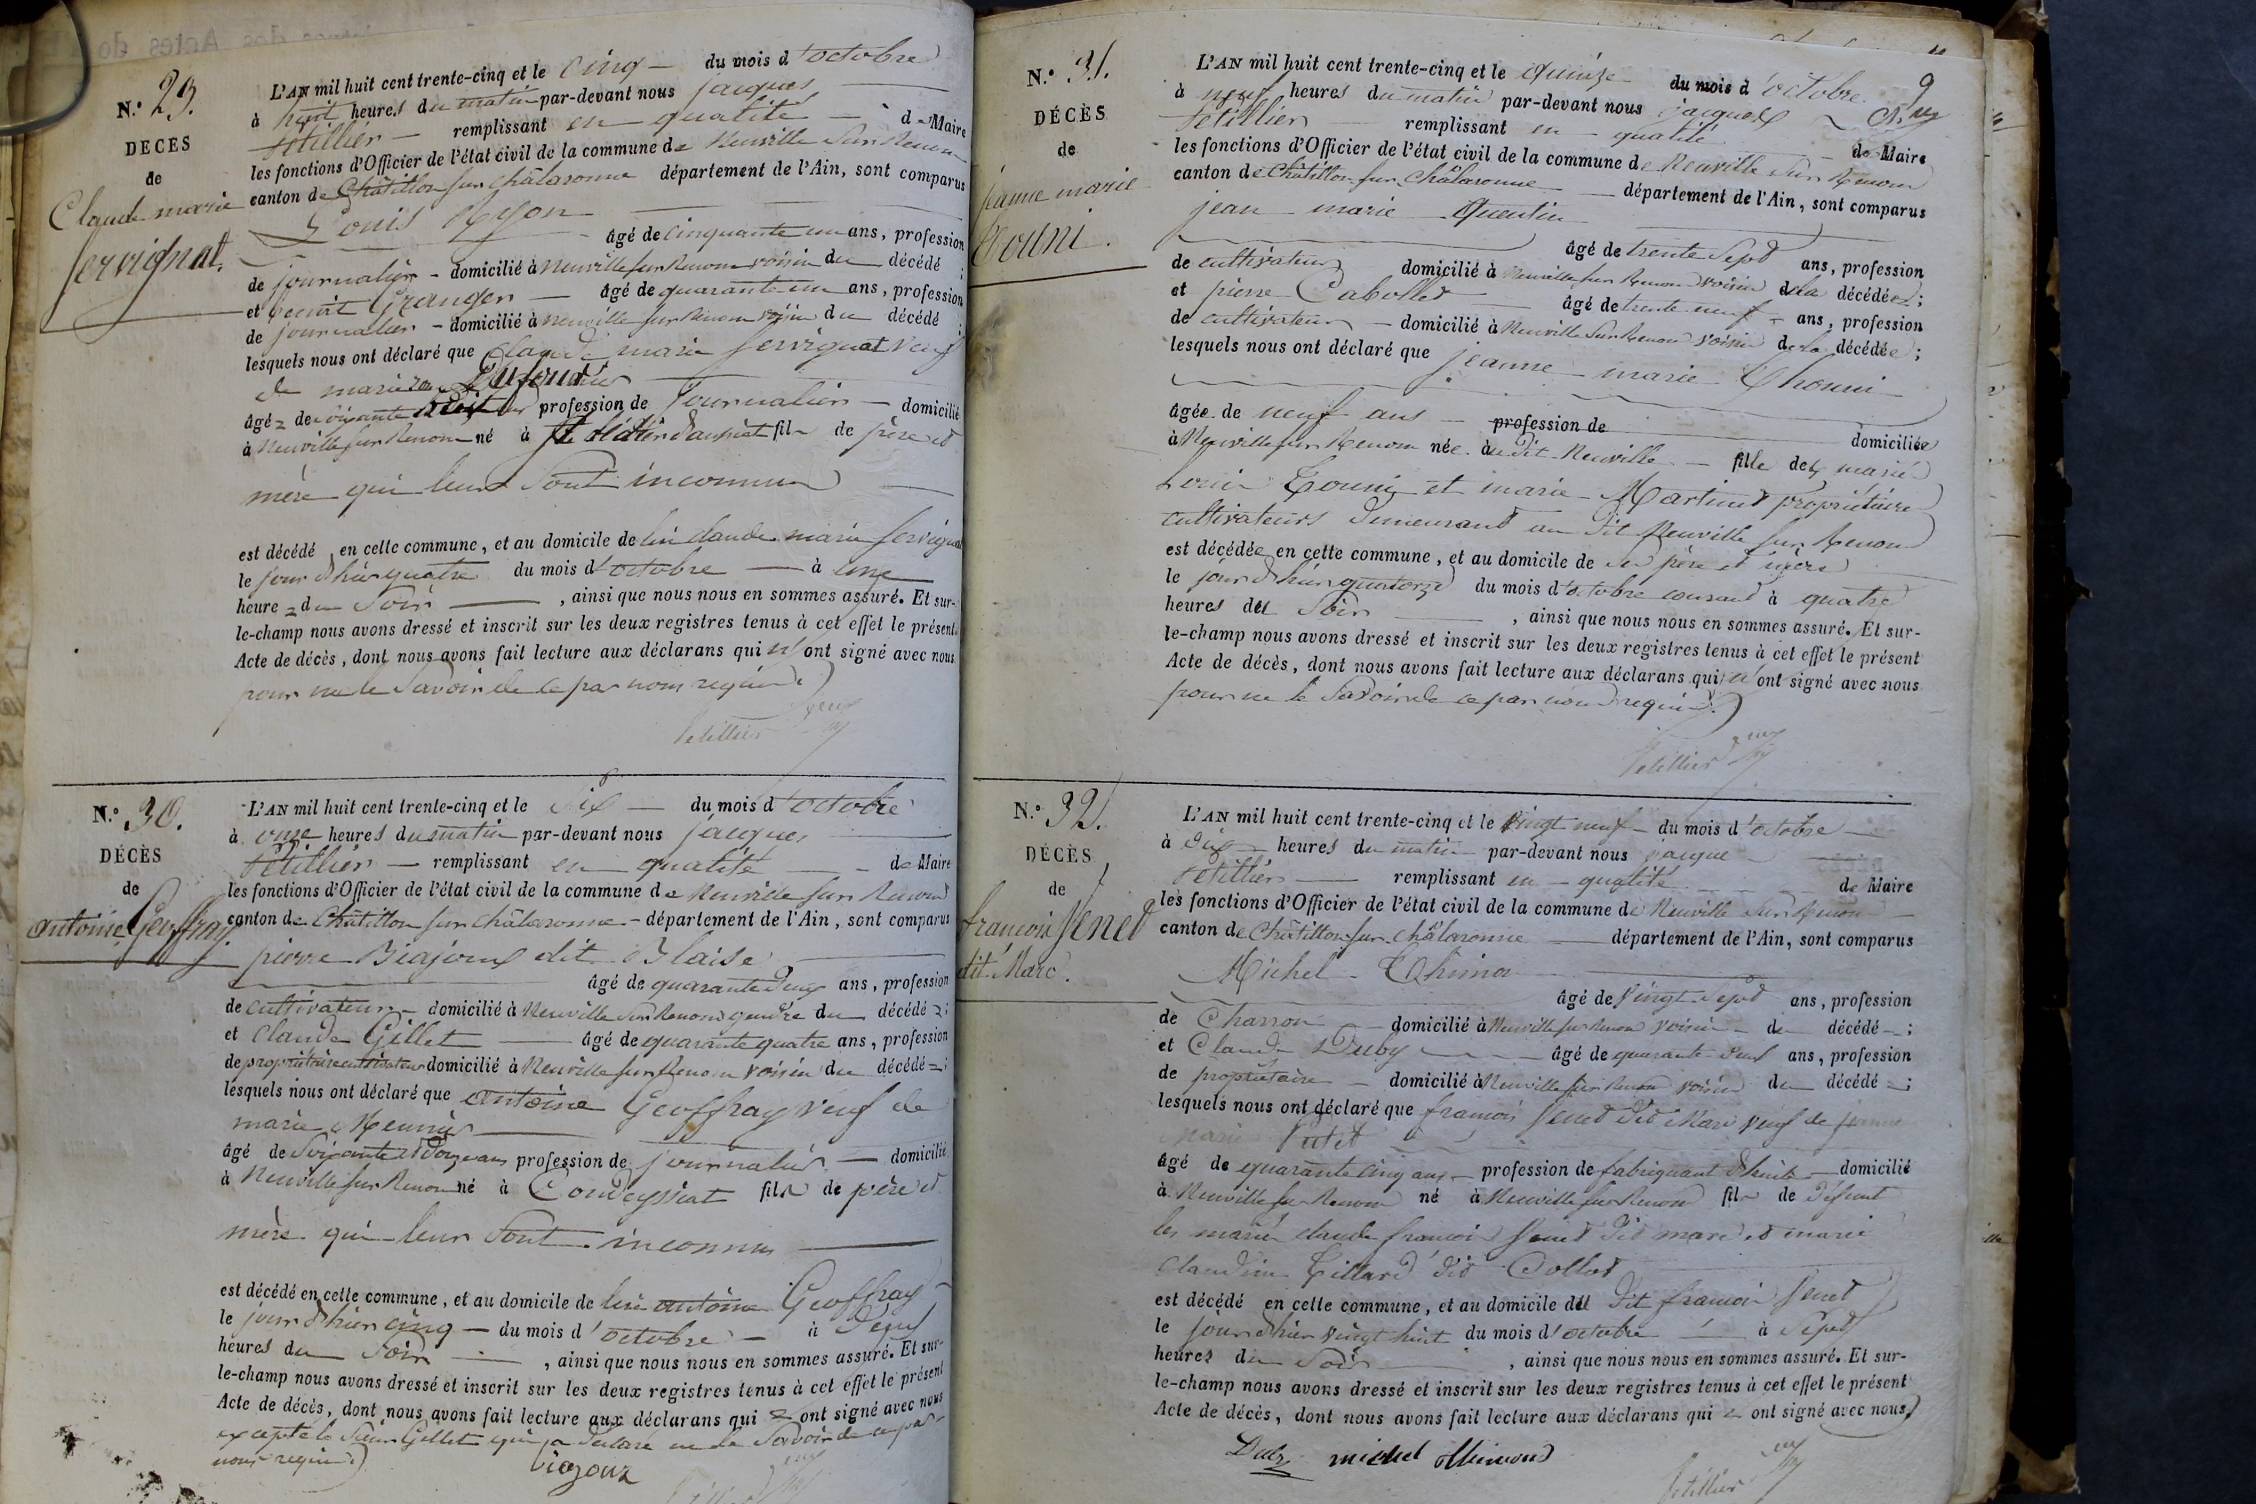 N.° 29.
DECES
de
Claude marie
Servignat.
L'AN mil huit cent trente-cinq et le cinq du mois d'octobre
à huit heures du matin par-devant nous jacques
Petillier remplissant en qualité de Maire
les fonctions d'Officier de l'état civil de la commune de Neuville Sur Renom
canton de Châtillon sur châlaronne département de l'Ain, sont comparus
Louis
âgé de cinquante un ans, profession
de journalier domicilié à Neuville sur Renom voisin du décédé ;
et benoit Granger âgé de quarante un ans, profession
de journalier domicilié à Neuville sur Renom voisin du décédé ;
lesquels nous ont déclaré que Claude marie Servignat veuf
de
âgé de soixante ans profession de journalier domicilié
à Neuville sur Renom né à fils de père et
mère qui leur Sont inconnus
est décédé en celle commune, et au domicile de lui claude marie Servignat
le jour d'hier quatre du mois d'octobre à une
heure du Soir , ainsi que nous nous en sommes assuré. Et sur-
le-champ nous avons dressé et inscrit sur les deux registres tenus à cet effet le présent
Acte de décès, dont nous avons fait lecture aux déclarans qui n'ont signé avec nous
pour ne le Savoir de ce par nous requis.
Petillier
N.° 30.
DÉCÈS
de
antoine Geoffray.
L'AN mil huit cent trente-cinq et le Six du mois d'octobre
à onze heures du matin par-devant nous jacques
Petillier remplissant en qualité de Maire
les fonctions d'Officier de l'état civil de la commune de Neuville sur Renom
canton de Châtillon sur châlaronne département de l'Ain, sont comparus
pierre Biajoux dit Blaise
âgé de quarante deux ans, profession
de cultivateur domicilié à Neuville Sur Renom gendre du décédé ;
et Claude Gillet âgé de quarante quatre ans, profession
de propriétaire cultivateur domicilié à Neuville sur Renom voisin du décédé ;
lesquels nous ont déclaré que antoine Geoffray veuf de
marie Meunier
âgé de Soixante et douze ans profession de journalier domicilié
à Neuville sur Renom né à Condeyssiat fils de père et
mère qui leur Sont inconnus
est décédé en celle commune, et au domicile de lui antoine Geoffray
le jour d'hier cinq du mois d'octobre à Deux
heures du Soir , ainsi que nous nous en sommes assuré. Et sur-
le-champ nous avons dressé et inscrit sur les deux registres tenus à cet effet le présent
Acte de décès, dont nous avons fait lecture aux déclarans qui ont signé avec nous
excepté le Sieur Gillet qui a déclaré ne le Savoir de ce par
nous requis.
N.° 31.
DÉCÈS
de
jeanne marie
Touni.
9
L'AN mil huit cent trente-cinq et le quinze du mois d'octobre
à neuf heures du matin par-devant nous jacques
Petillier remplissant en qualité de Maire
les fonctions d'Officier de l'état civil de la commune de Neuville Sur Renom
canton de Châtillon sur Châlaronne département de l'Ain, sont comparus
jean marie Quentin
âgé de trente Sept ans, profession
de cultivateur domicilié à Neuville sur Renom voisin de la décédée ;
et pierre Cabollet âgé de trente neuf ans, profession
de cultivateur domicilié à Neuville Sur Renom voisin de la décédée ;
lesquels nous ont déclaré que jeanne marie Thouni
âgée de neuf ans profession de domiciliée
à Neuville sur Renom née au dit Neuville fille des mariés
Louis Touni et marie Martinet propriétaires
cultivateurs demeurant au dit Neuville sur Renom
est décédée en cette commune, et au domicile de ses père et mère
le jour d'hier quatorze du mois d'octobre courant à quatre
heures du Soir , ainsi que nous nous en sommes assuré. Et sur-
le-champ nous avons dressé et inscrit sur les deux registres tenus à cet effet le présent
Acte de décès, dont nous avons fait lecture aux déclarans qui n'ont signé avec nous
pour ne le Savoir de ce par nous requis.
Petillier
N.° 32.
DÉCÈS
de
francois Senet
dit Marc.
L'AN mil huit cent trente-cinq et le vingt neuf du mois d'octobre
à dix heures du matin par-devant nous jacque
Petillier remplissant en qualité de Maire
les fonctions d'Officier de l'état civil de la commune de Neuville Sur Renom
canton de Châtillon sur châlaronne département de l'Ain, sont comparus
Michel
âgé de Vingt Sept ans, profession
de Charron domicilié à Neuville sur Renom voisin du décédé ;
et Claude Duby âgé de quarante ans, profession
de propriétaire domicilié à Neuville sur Renom voisin du décédé ;
lesquels nous ont déclaré que francois Senet dit Marc veuf de jeanne
marie Putet
âgé de quarante cinq ans profession de fabriquant d'huile domicilié
à Neuville sur Renom né à Neuville sur Renom fils de défunt
les mariés claude francois Senet dit marc et marie
Claudine Tillard dit Collot
est décédé en celle commune, et au domicile du dit francois Senet
le jour d'hier vingt huit du mois d'octobre à Sept
heures du Soir , ainsi que nous nous en sommes assuré. Et sur-
le-champ nous avons dressé et inscrit sur les deux registres tenus à cet effet le présent
Acte de décès, dont nous avons fait lecture aux déclarans qui ont signé avec nous
michel
Petillier